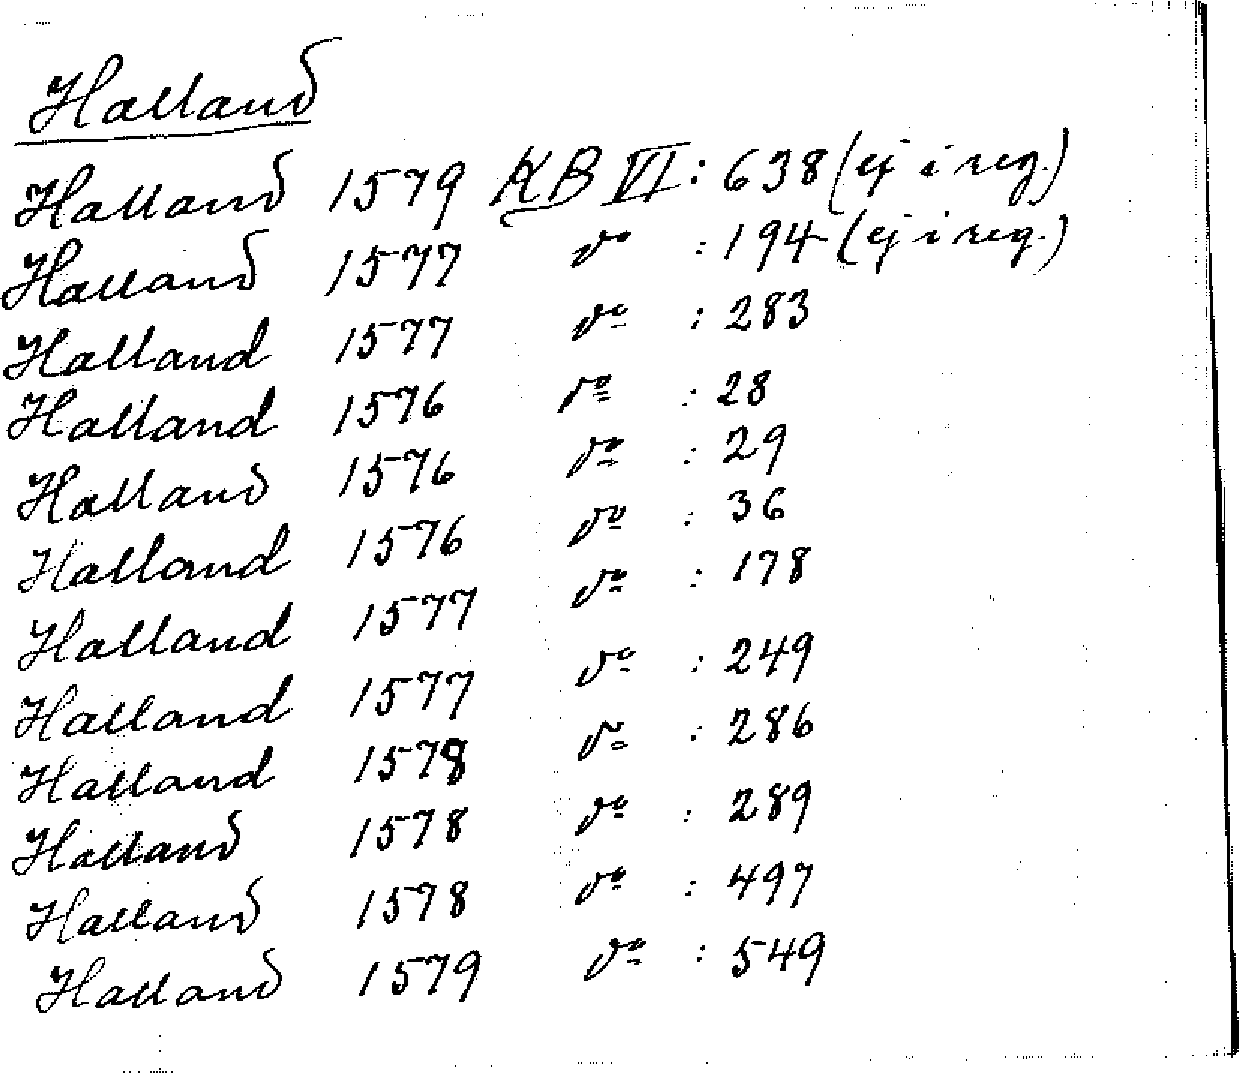 Halland
Halland 1579 KB VI : 638 (ej i reg.)
Halland 1577 do : 194 (ej i reg.)
Halland 1577 do : 283
Halland 1576 do : 28
Halland 1576 do : 29
Halland 1576 do : 36
Halland 1577 do : 178
Halland 1577 do : 249
Halland 1578 do : 286
Halland 1578 do : 289
Halland 1578 do : 497
Halland 1579 do : 549